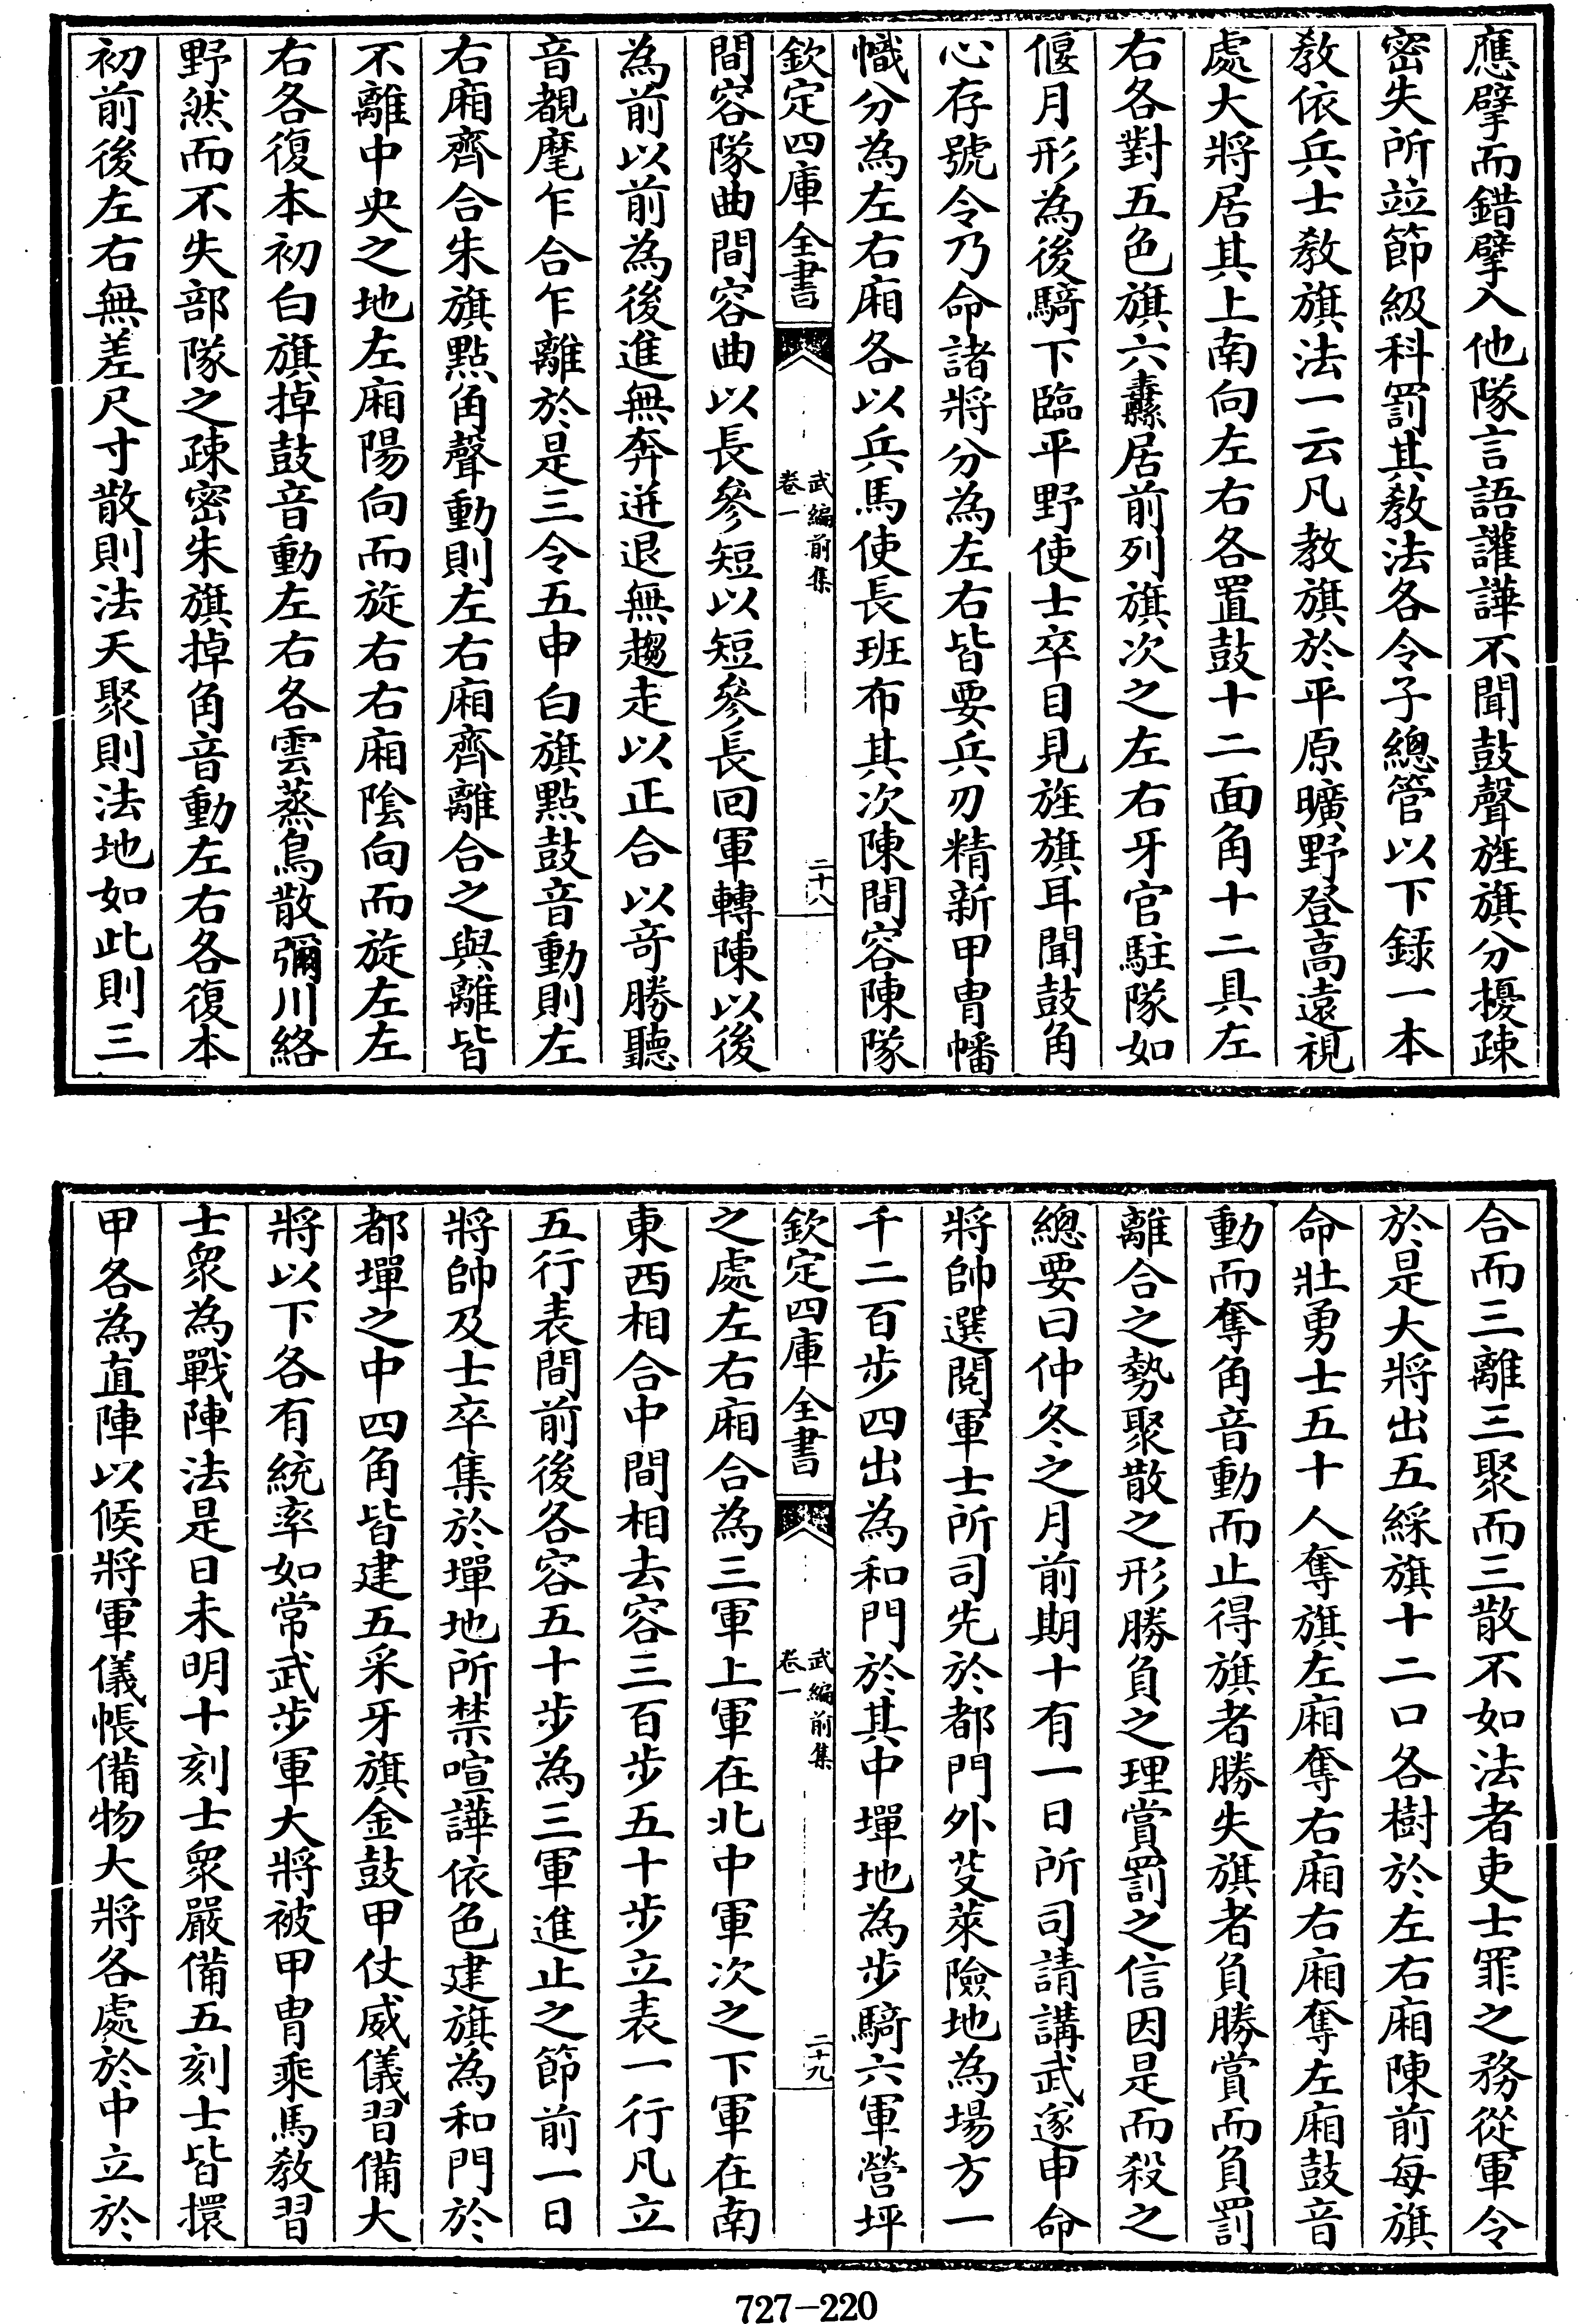 應擘而錯擘入他隊言語讙譁不聞鼓聲旌旗分擾疎
密失所竝節級科罰其教法各令子總管以下錄一本
教依兵士教旗法一云凡教旗於平原曠野登高遠視
處大將居其上南向左右各置鼓十二面角十二具左
右各對五色旗六纛居前列旗次之左右牙官駐隊如
偃月形為後騎下臨平野使士卒目見旌旗耳聞鼓角
心存號令乃命諸將分為左右皆要兵刃精新甲冑幡
幟分為左右廂各以兵馬使長班布其次陳間容陳隊
欽定四庫全書
武編前集
卷一
二十八
間容隊曲間容曲以長參短以短參長回軍轉陳以後
為前以前為後進無奔迸退無趨走以正合以奇勝聽
音覩麾乍合乍離於是三令五申白旗點鼓音動則左
右廂齊合朱旗點角聲動則左右廂齊離合之與離皆
不離中央之地左廂陽向而旋右右廂陰向而旋左左
右各復本初白旗掉鼓音動左右各雲蒸鳥散彌川絡
野然而不失部隊之疎密朱旗掉角音動左右各復本
初前後左右無差尺寸散則法天聚則法地如此則三
合而三離三聚而三散不如法者吏士罪之務從軍令
於是大將出五綵旗十二口各樹於左右廂陳前每旗
命壯勇士五十人奪旗左廂奪右廂右廂奪左廂鼓音
動而奪角音動而止得旗者勝失旗者負勝賞而負罰
離合之勢聚散之形勝負之理賞罰之信因是而殺之
總要曰仲冬之月前期十有一日所司請講武遂申命
將帥選閱軍士所司先於都門外芟萊險地為場方一
千二百步四出為和門於其中墠地為步騎六軍營坪
欽定四庫全書
武編前集
卷一
二十九
之處左右廂合為三軍上軍在北中軍次之下軍在南
東西相合中間相去容三百步五十步立表一行凡立
五行表間前後各容五十步為三軍進止之節前一日
將帥及士卒集於墠地所禁喧譁依色建旗為和門於
都墠之中四角皆建五采牙旗金鼓甲仗威儀習備大
將以下各有統率如常武步軍大將被甲冑乘馬教習
士眾為戰陣法是日未明十刻士眾嚴備五刻士皆擐
甲各為直陣以候將軍儀帳備物大將各處於中立於
727-220